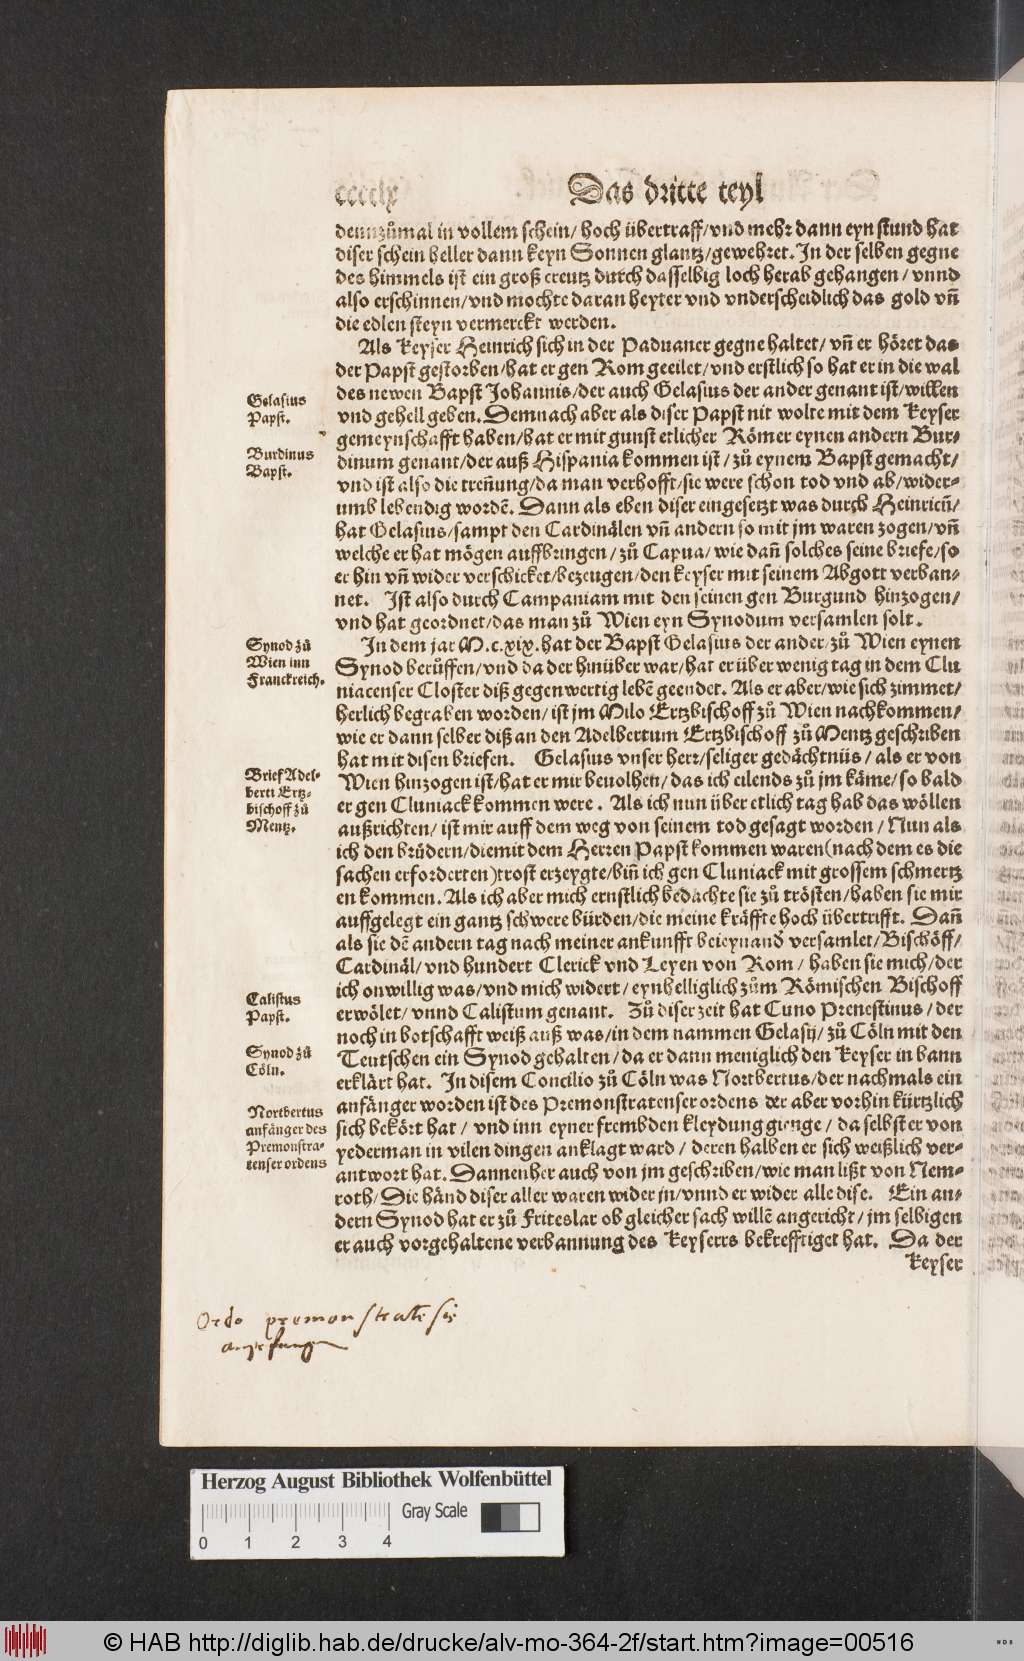 cccclx
Das dritte teyl
dennzůmal in vollem schein/ hoch übertraff/vnd mehr dann eyn stund hat
diser schein heller dann keyn Sonnen glantz/gewehret. In der selben gegne
des himmels ist ein groß creutz durch dasselbig loch herab gehangen/ vnnd
also erschinnen/vnd mochte daran heyter vnd vnderscheidlich das gold vñ
die edlen steyn vermerckt werden.
Als Keyser Heinrich sich in der Paduaner gegne haltet/ vñ er höret das
der Papst gestorben/hat er gen Rom geeilet/vnd erstlich so hat er in die wal
des newen Bapst Johannis/der auch Gelasius der ander genant ist/willen
vnd gehell geben. Demnach aber als diser Papst nit wolte mit dem Keyser
gemeynschafft haben/hat er mit gunst etlicher Römer eynen andern Bur-
dinum genant/der auß Hispania kommen ist/ zů eynem Bapst gemacht/
vnd ist also die treñung/da man verhofft/sie were schon tod vnd ab/wider-
umb lebendig wordē. Dann als eben diser eingesetzt was durch Heinricū/
hat Gelasius/sampt den Cardinälen vñ andern so mit jm waren zogen/vñ
welche er hat mögen auffbringen/ zů Capua/ wie dañ solches seine briefe/so
er hin vñ wider verschicket/bezeugen/den keyser mit seinem Abgott verban-
net. Ist also durch Campaniam mit den seinen gen Burgund hinzogen/
vnd hat geordnet/das man zů Wien eyn Synodum versamlen solt.
In dem jar M.c.xix.hat der Bapst Gelasius der ander/zů Wien eynen
Synod berůffen/vnd da der hinüber war/hat er über wenig tag in dem Clu
niacenser Closter diß gegenwertig lebē geendet. Als er aber/wie sich zimmet/
herlich begraben worden/ ist jm Milo Ertzbischoff zů Wien nachkommen/
wie er dann selber diß an den Adelbertum Ertzbischoff zů Mentz geschriben
hat mit disen briefen. Gelasius vnser herr/seliger gedächtnüs/ als er von
Wien hinzogen ist/hat er mir beuolhen/das ich eilends zů jm käme/so bald
er gen Cluniack kommen were. Als ich nun über etlich tag hab das wöllen
außrichten/ ist mir auff dem weg von seinem tod gesagt worden/ Nun als
ich den brüdern/die mit dem Herren Papst kommen waren(nach dem es die
sachen erforderten)trost erzeygte/biñ ich gen Cluniack mit grossem schmertz
en kommen. Als ich aber mich ernstlich bedachte sie zů trösten/haben sie mir
auffgelegt ein gantz schwere bürden/die meine kräffte hoch übertrifft. Dañ
als sie dē andern tag nach meiner ankunfft beieynander versamlet/Bischöff/
Cardinäl/ vnd hundert Clerick vnd Leyen von Rom/ haben sie mich/der
ich onwillig was/vnd mich widert/ eynhelliglich zům Römischen Bischoff
erwölet/ vnnd Calistum genant. Zů diser zeit hat Cuno Prenestinus/ der
noch in botschafft weiß auß was/in dem nammen Gelasij/ zů Cöln mit den
Teutschen ein Synod gehalten/da er dann meniglich den Keyser in bann
erklärt hat. In disem Concilio zů Cöln was Nortbertus/der nachmals ein
anfänger worden ist des Premonstratenser ordens der aber vorhin kürtzlich
sich bekört hat/ vnd inn eyner frembden kleydung gienge/ da selbst er von
yederman in vilen dingen anklagt ward/ deren halben er sich weißlich ver-
antwort hat. Dannenher auch von jm geschriben/wie man lißt von Nem-
roth/ Die händ diser aller waren wider jn/vnnd er wider alle dise. Ein an-
dern Synod hat er zů Friteslar ob gleicher sach willē angericht/ jm selbigen
er auch vorgehaltene verbannung des Keysers bekrefftiget hat. Da der
Keyser
Gelasius
Papst.
Burdinus
Bapst.
Synod zů
Wien inn
Franckreich.
Brief Adel-
berti Ertz-
bischoff zů
Mentz.
Calistus
Papst.
Synod zů
Cöln.
Nortbertus
anfänger des
Premonstra-
tenser ordens
Ordo premonstratēsis
angefangen
Herzog August Bibliothek Wolfenbüttel
Gray Scale
0 1 2 3 4
© HAB http://diglib.hab.de/drucke/alv-mo-364-2f/start.htm?image=00516